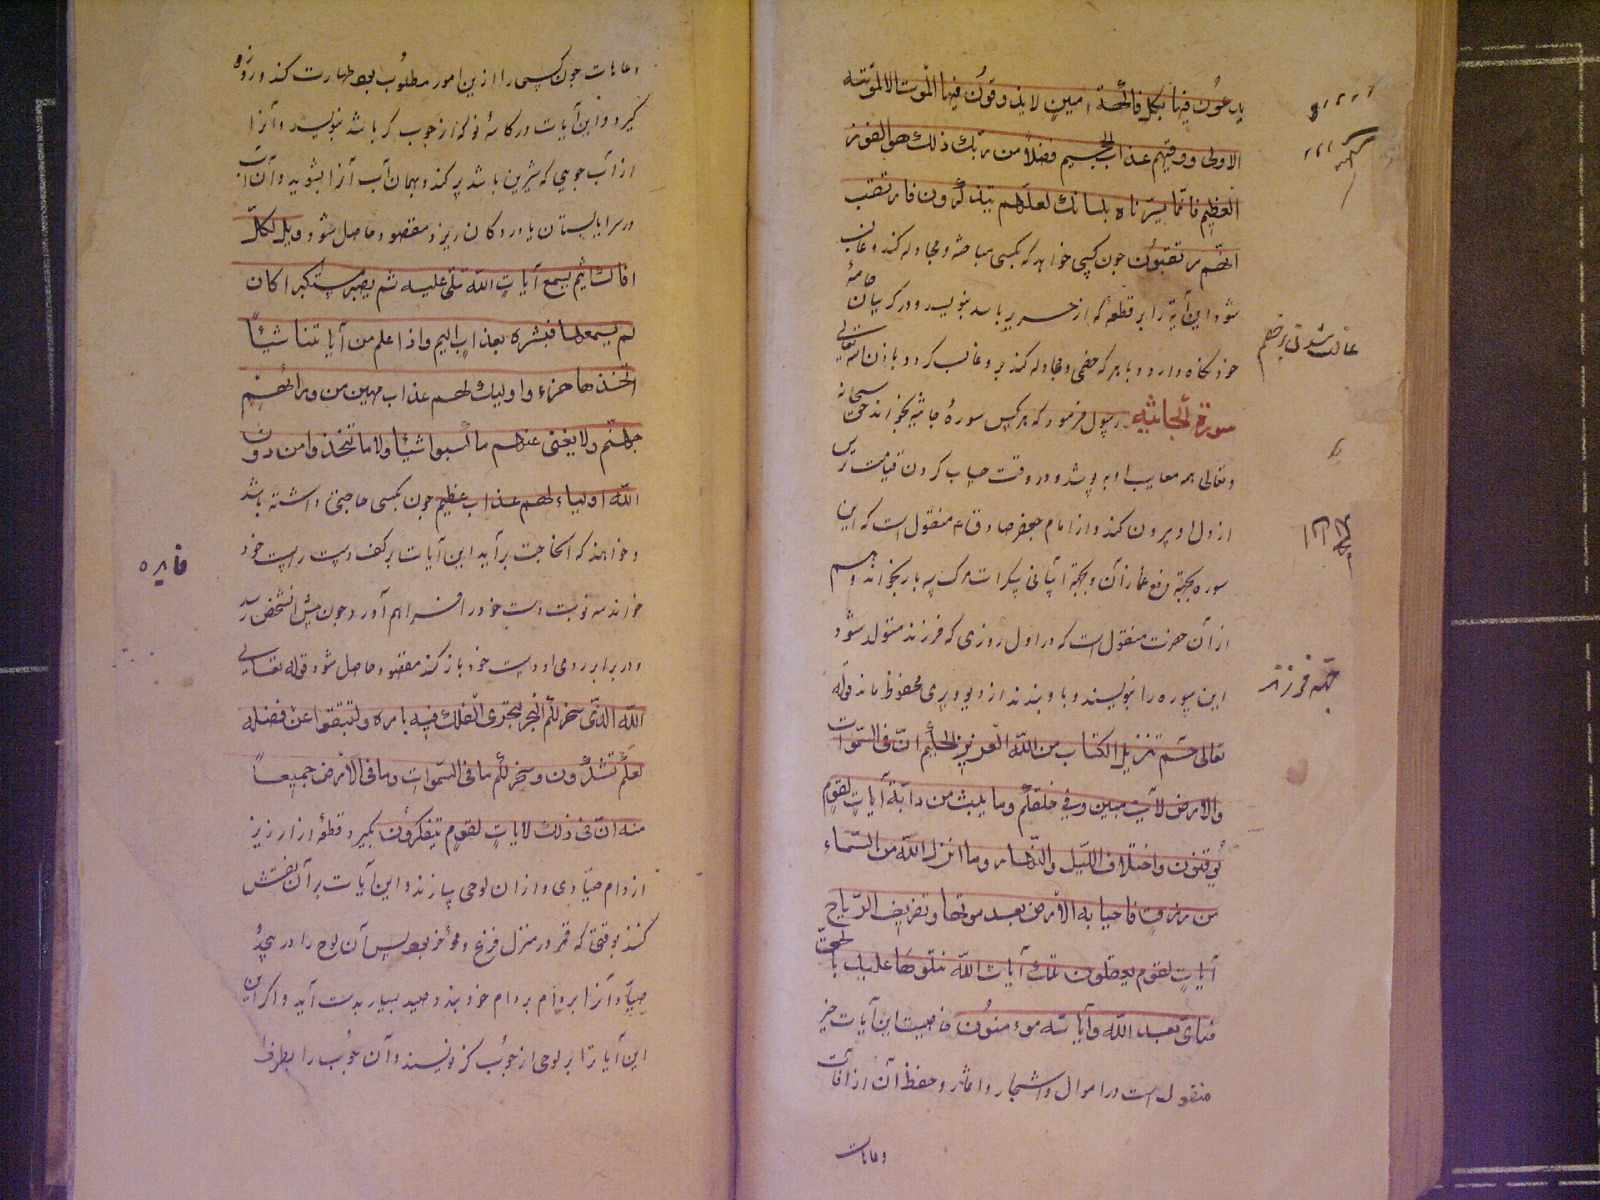 يدعون فيها بكل فاكهة امنين لا يذوقون فيها الموت الا الموتة
الاولى ووقيهم عذاب الجحيم فضلا من ربك ذلك هو الفوز
العظيم فانما يسرناه بلسانك لعلهم يتذكرون فارتقب
انهم مرتقبون چون کسی خواهد که بکسی مباحثه و مجادله کند و غالب
شود این آیة را بر قطعه که از حریر باشد بنویسد و در کریبان جامهٔ
خود نکاه دارد و با هر که خصمی و مجادله کند برو غالب کردد باذن الله تعالی
سورة الجاثيه رسول فرمود که هر کس سورهٔ جاثیه بخواند حق سبحانه
وتعالی همه معایب او بپوشد و در وقت حساب کردن قیامت ترس
از دل او بیرون کند و از امام جعفر صادق ع منقول است که این
سوره بجهة دفع غماز آن و بجهة آسانی سکرات مرک سه بار بخواند وهم
از آن حضرت منقول است که در اول روزی که فرزند متولد شود
این سوره را بنویسند و با و بندند از دیو و پری محفوظ ماند قوله
تعالى حم تنزيل الكتاب من الله العزيز الحكيم ان فى السموات
والارض لآيت مبين وفي خلقكم وما يبث من دابة آيات لقوم
يوقنون واختلاف الليل والنهار وما انزل الله من السماء
من رزق فاحيا به الارض بعد موتها وتصريف الرياح
آيات لقوم يعقلون تلك آيات الله نتلوها عليك بالحق
فباى بعد الله وآياته يؤمنون خاصیت این آیات خیر
منقول است در اموال و اشجار و اثمار و حفظ آن از آفات
وعاهات
غالب شدن بر خصم
جهة فرزند
وعاهات چون کسی را ازین امور مطلوب بود طهارت کند و روزه
کیرد و این آیات در کاسهٔ نو که از چوب کز باشد بنویسد و آنرا
از آب چوبی که شیرین باشد پر کند و بهمان آب آنرا بشوید و آن آب
در سرا یا بستان یا در دکان ریزد مقصود حاصل شود ويل لكل
افاك اثيم يسمع آيات الله تتلى عليه ثم يصر مستكبرا كان
لم يسمعها فبشره بعذاب اليم واذا علم من آياتنا شيئا
اتخذها هزء واوليك لهم عذاب مهين من ورائهم
جهنم ولا يغنى عنهم ما كسبوا شيئا ولا ما تتخذوا من دون
الله اولياء لهم عذاب عظيم چون بکسی حاجتی داشته باشد
و خواهند که آنحاجت برآید این آیات بر کف دست راست خود
خواند سه نوبت دست خود را فراهم آورد و چون پیش آنشخص رسد
و در برابر روی او دست خود باز کند مقصود حاصل شود قوله تعالی
الله الذى سخر لكم البحر لتجرى الفلك فيه بامره ولتبتغوا من فضله
لعلكم تشكرون وسخر لكم ما فى السموات وما فى الارض جميعا
منه ان فى ذلك لايات لقوم يتفكرون بکیرد قطعهٔ از ارزیز
از دام صیادی و از ان لوحی بسازند و این آیات بر آن نقش
کنند بوقتی که قمر در منزل فرغ مؤخر بود پس آن لوح را در پیچد
صیاد آنرا بر دام خود بندد صید بسیار بدست آید و اکر این
این آیات را بر لوحی از چوب کز نویسند و آن چوب را بطرف
فایده